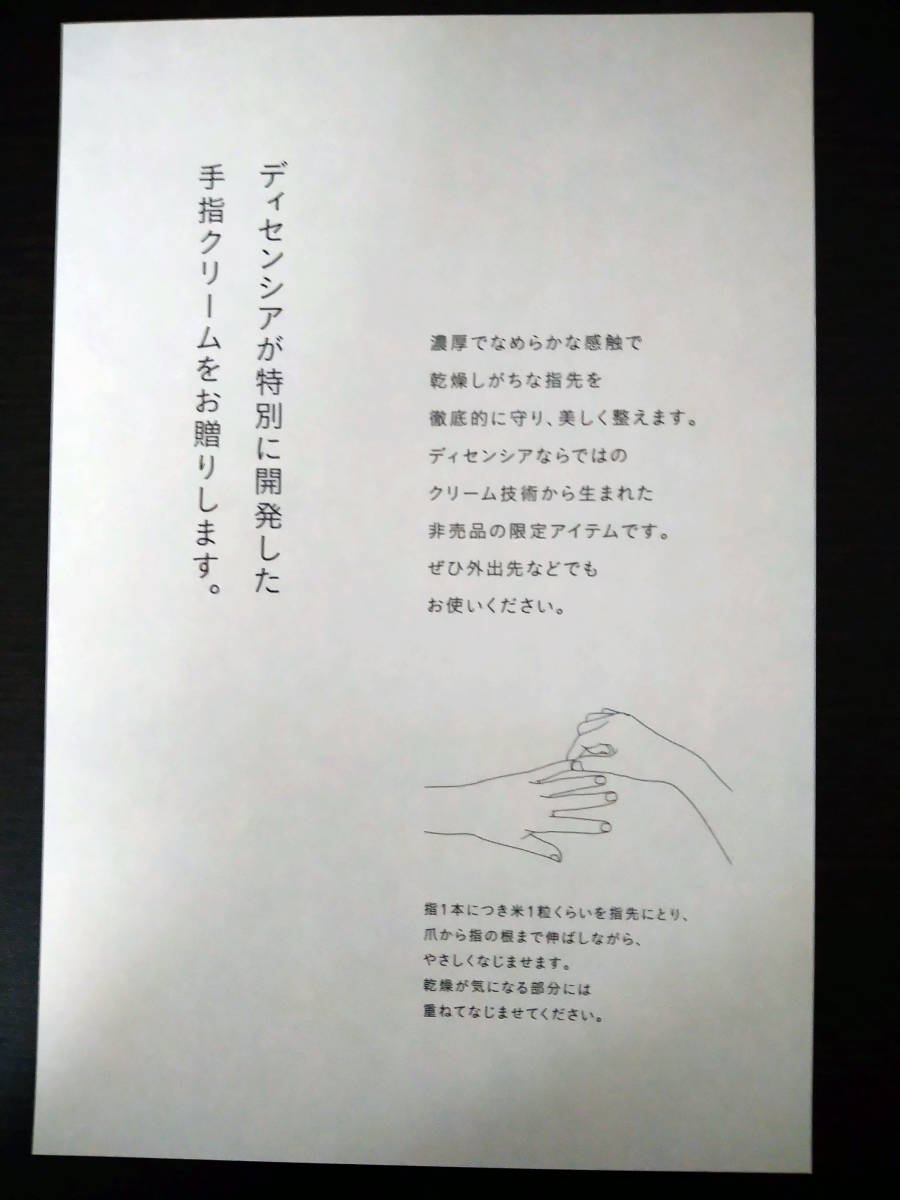 ディセンシアが特別に開発した
手指クリームをお贈りします。
濃厚でなめらかな感触で
乾燥しがちな指先を
徹底的に守り、美しく整えます。
ディセンシアならではの
クリーム技術から生まれた
非売品の限定アイテムです。
ぜひ外出先などでも
お使いください。
指1本につき米1粒くらいを指先にとり、
爪から指の根まで伸ばしながら、
やさしくなじませます。
乾燥が気になる部分には
重ねてなじませてください。